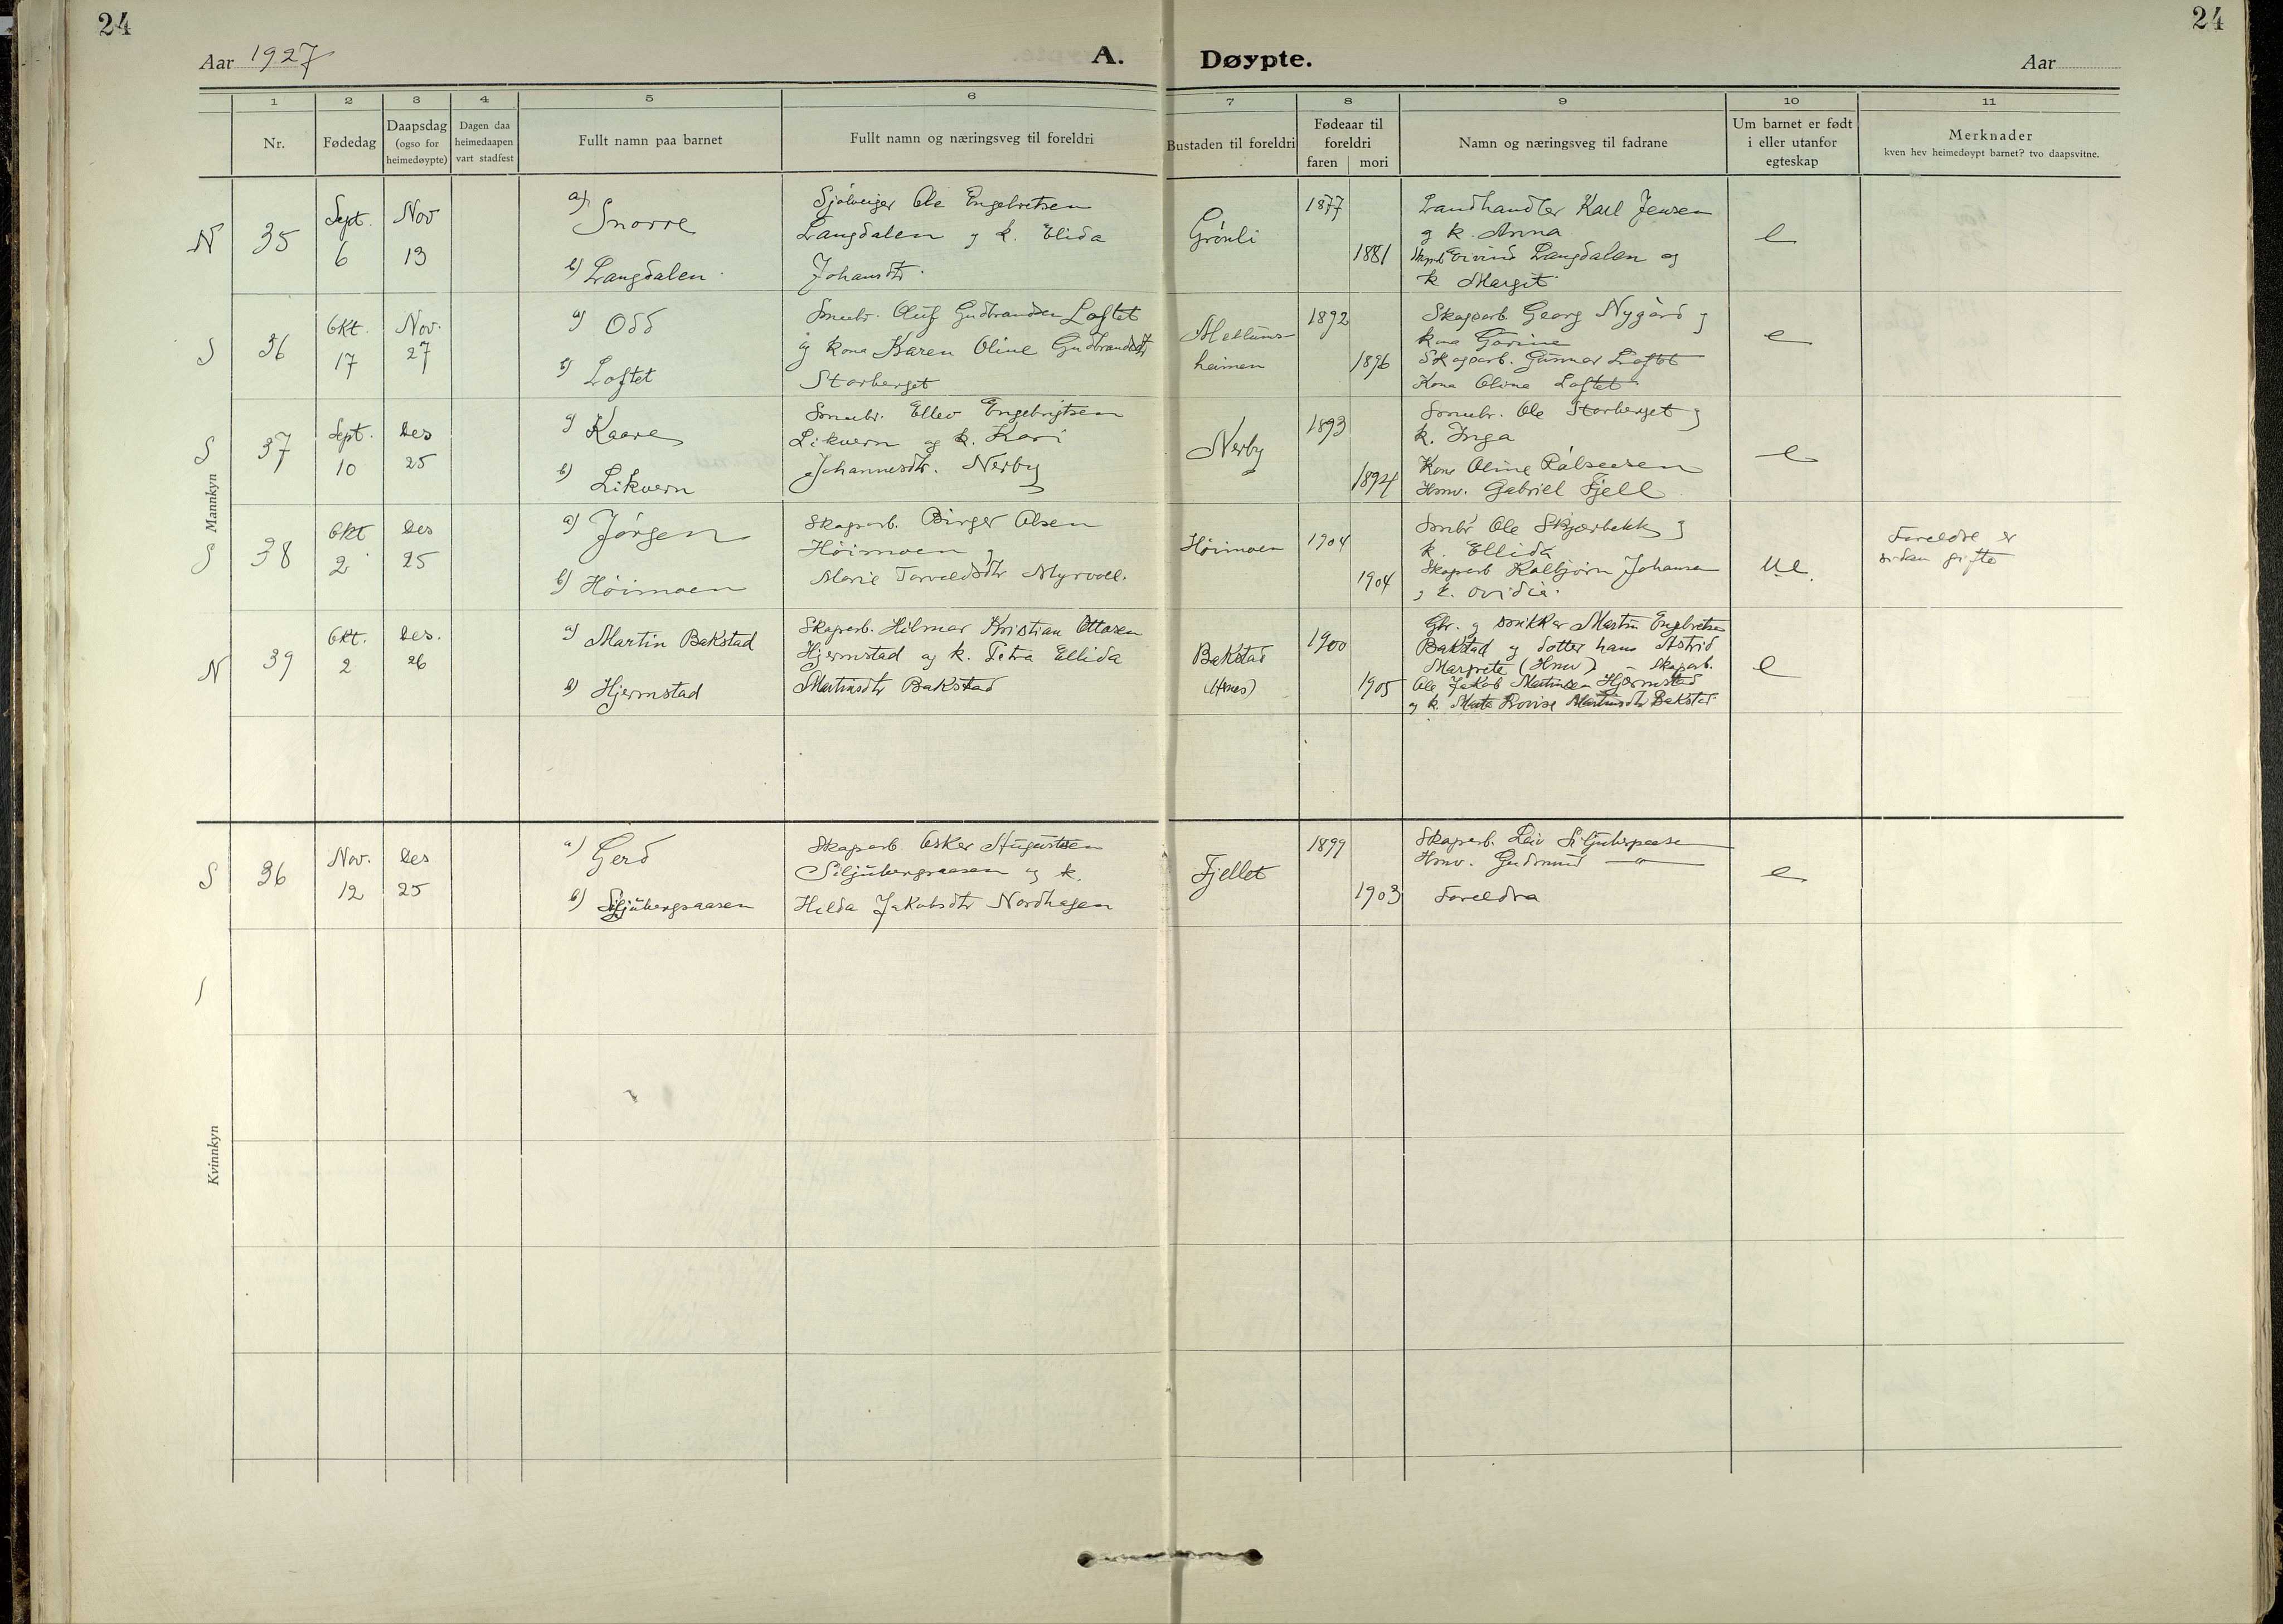 24
24
Aar 1927
A. Døypte.
Aar
1 2 3 4 5 6 7 8 9 10 11
Nr.
Fødedag
Daapsdag
(ogso for
heimedøypte)
Dagen daa
heimedaapen
vart stadfest
Fullt namn paa barnet
Fullt namn og næringsveg til foreldri
Bustaden til foreldri
Fødeaar til
foreldri
faren mori
Namn og næringsveg til fadrane
Um barnet er født
i eller utanfor
egteskap
Merknader
kven hev heimedøypt barnet? tvo daapsvitne.
Mannkyn
N 35
Sept. 6
Nov 13
a) Snorre
b) Langdalen
Sjølveiger Ole Engebretsen
Langdalen og k. Elida
Johansdtr.
Grönli
1877
1881
Landhandler Karl Jensen
og k. Anna
Eivind Langdalen og
k Margit
e
S 36
Okt. 17
Nov. 27
a) Odd
b) Loftet
Smubr. Oluf Gudbrandsen Loftet
og kona Karen Oline Gudbrandsdtr
Storberget
heimen
1892
1896
Skogsarb. Georg Nygård og
kona Gorine
Skogarb. Gunnar Loftet
Kona Olina Loftet
e
S 37
Sept. 10
Des 25
a) Kaare
b) Likvern
Smubr. Ellev Engebrigtsen
Likvern og k. Kari
Johannesdtr. Nerby
Nerby
1893
1894
Smubr. Ole Storberget og
k. Inga
Kona Oline
Hmv. Gabriel Fjell
e
S 38
Okt 2
Des 25
a) Jörgen
b) Höimoen
Skogarb. Birger Olsen
Höimoen og
Marie Torvaldsdtr Myrvoll.
Höimoen
1904
1904
Smbr Ole Skjærbekk og
k. Ellida
Skogarb Kolbjörn Johansen
og k. Ovidia.
ue.
Foreldre er
sidan gifte
N 39
Okt. 2
Des. 26
a) Martin Bakstad
b) Hjermstad
Skogarb. Hilmar Kristian Ottosen
Hjermstad og k. Petra Ellida
Martinsdtr Bakstad
Bakstad
(Hernes)
1900
1905
Gbr. og snikker Martin Engebretsen
Bakstad og dotter hans Astrid
Margrete (Hmv) - Skogarb.
Ole Jakob Martinsen Hjermstad
og k. Marta Lovise Martinsdtr Bakstad
e
Kvinnkyn
S 36
Nov. 12
Des 25
a) Gerd
b) Siljubergsaasen
Skogarb Osker Augustsen
Siljubergsaasen og k.
Hilda Jakobsdtr Nordhagen
Fjellet
1899
1903
Skogarb. Leiv Siljubergsaasen
Hmv. Gudmund —"—
Foreldra
e